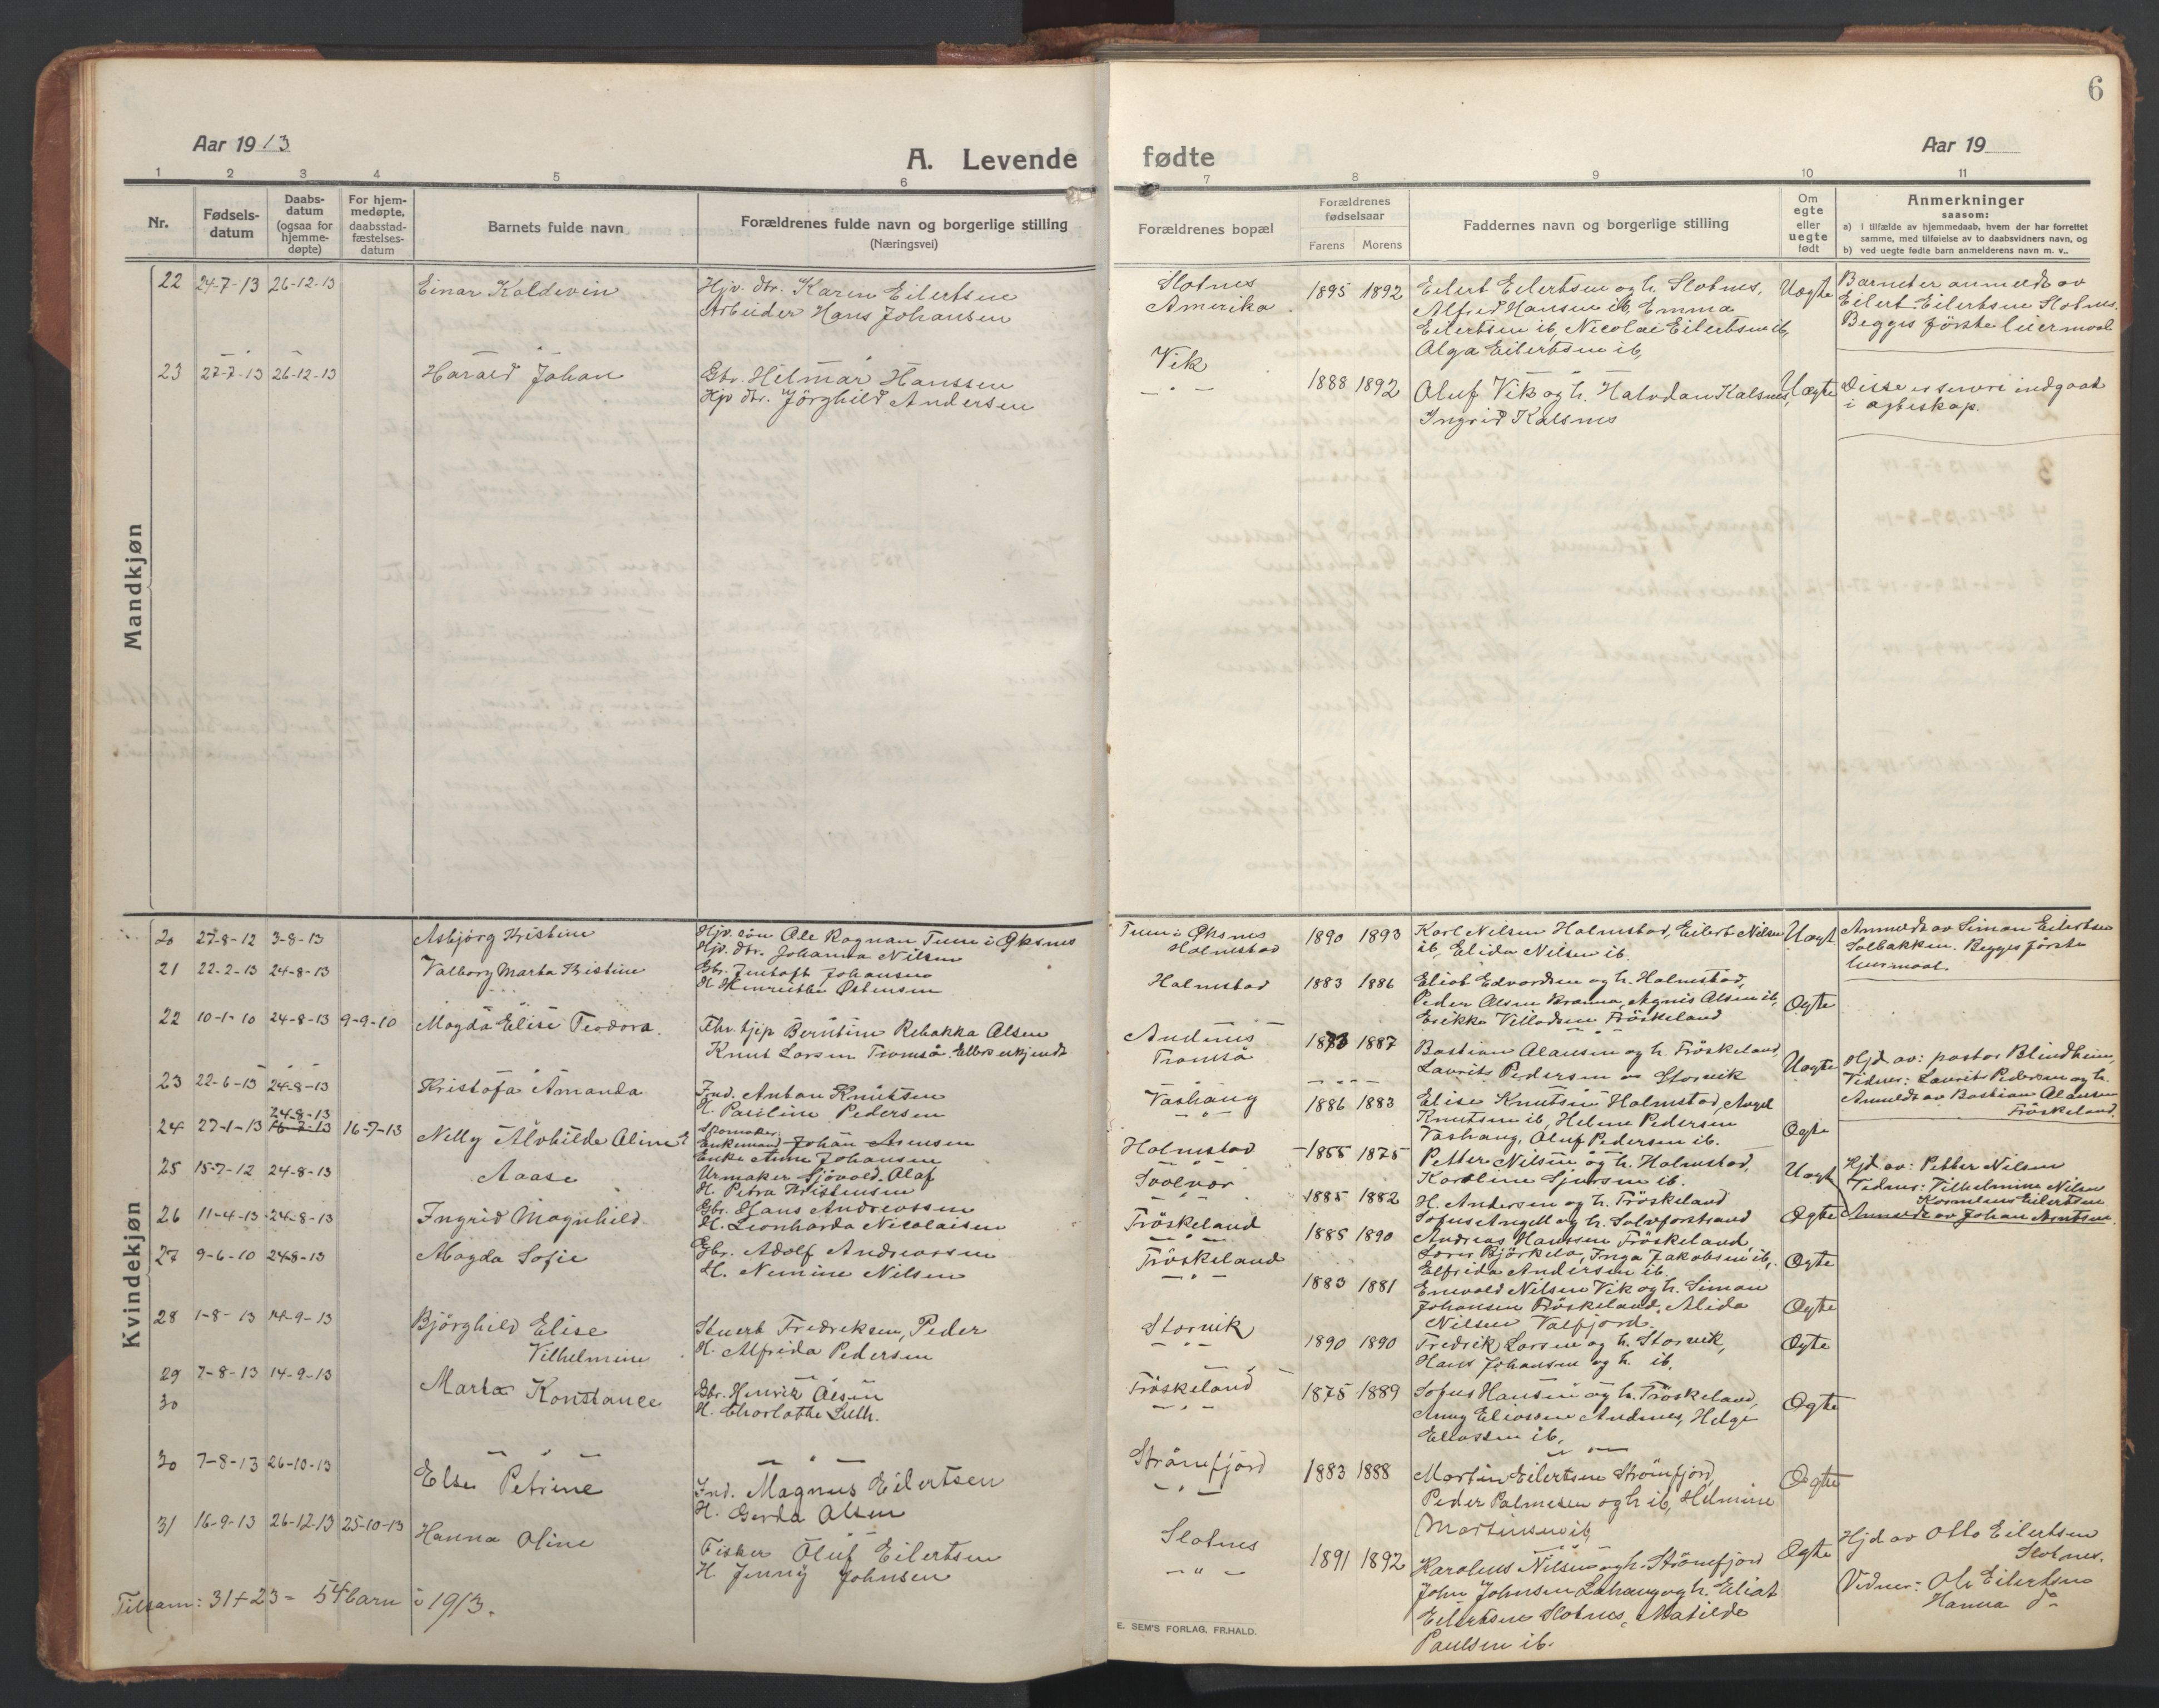 6
Aar 1913
A. Levende fødte
Aar 19
1 2 3 4 5 6 7 8 9 10 11
Nr.
Fødsels-
datum
Daabs-
datum
(ogsaa for
hjemme-
døpte)
For hjem-
medøpte,
daabsstad-
fæstelses-
datum
Barnets fulde navn
Forældrenes fulde navn og borgerlige stilling
(Næringsvei)
Forældrenes bopæl
Forældrenes
fødselsaar
Farens Morens
Faddernes navn og borgerlige stilling
Om
egte
eller
uegte
født
Anmerkninger
saasom:
a) i tilfælde av hjemmedaab, hvem der har forrettet
samme, med tilføielse av to daabsvidners navn, og
b) ved uegte fødte barn anmelderens navn m. v..
Mandkjøn
22 24-7-13 26-12-13 Einar Koldevin
Hjv. dtr. Karen Eilertsen
Arbeider Hans Johansen
Slotnes
Amerika
1895 1892
Eilert Eilertsen og h. Slotnes,
Alfred Hansen ib, Emma
Eilertsen ib, Nicolai Eilertsen ib,
Alga Eilertsen ib,
Uægte
Barnet er anmeldt av
Eilert Eilertsen Slotnes.
Begges første leiermaal
23 27-7-13 26-12-13 Harald Johan
Gbr. Hilmar Hanssen
Hjv dtr. Jörghild Andersen
Vik
— " —
1888 1892
Oluf Vik og h. Halvdan Kalsnes,
Ingrid Kalsnes
Uægte
Disse er senere indgaat
i ægteskap.
Kvindekjøn
20 27-8-12 3-8-13 Asbjørg Kristine
Hjv. søn Ole Ragnar Tunn i Øksnes
Hjv. dtr. Johanna Nilsen
Tunn i Øksnes
Holmstad
1890 1893
Karl Nilsen Holmstad, Eilert Nilsen
ib, Elida Nilsen ib.
Uægt
Anmeldt av Simon Eilertsen
Solbakken. Begges første
leiermaal.
21 22-2-13 24-8-13 Valborg Marta Kristine
Gbr. Jentoft Johansen
H. Henriette Østensen
Holmstad
1883 1886
Eliot Edvardsen og h. Holmstad,
Peder Olsen Kranna, Agnis Olsen ib,
Erikke Villadsen Fröskeland
Ægte
22 10-1-10 24-8-13 9-9-10 Magda Elise Teodora.
Fhv. tjp Berntine Rebakka Olsen
Knut Larsen Tromsø.
Andenes
Tromsø
1887
Bastian Olausen og h. Fröskeland,
Laurits Pedersen Storvik
Uægte
Hjd av: pastor Blindheim,
Vidner: Laurits Pedersen og h.
Anmeldt av Bastian Olausen
Fröskeland.
23 22-6-13 24-8-13 Kristofa Amanda
Ind. Anton Knutsen
H. Pauline Pedersen
Vashaug
— " —
1886 1883
Elise Knutsen Holmstad, Angel
Knutsen ib, Helene Pedersen
Vashaug, Oluf Pedersen ib.
Ægte
24 27-1-13 24-8-13 16-7-13 Nelly Alvhilde Aline
Skomaker
Enkemand Johan Arntsen
Enke Anne Johansen
Holmstad
— " —
1855 1875
Petter Nilsen og h. Holmstad,
Karoline Sjursen ib.
Uægt
Hjd av: Petter Nilsen
Vidner: Vilhelmine Nilsen
Kornelius Eilertsen
Anmeldt av Johan Arntsen.
25 15-7-12 24-8-13 Aase
Urmaker Sjövold, Olaf
H. Petra Kristensen
Svolvær
— " —
1885 1882
H. Andersen og h. Fröskeland
Sofus Angell og h. Solvforstrand
Ægte
26 11-4-13 24-8-13 Ingrid Magnhild.
Gbr. Hans Andreassen
H. Leonharda Nicolaisen
Fröskeland
— " —
1885 1890
Andreas Hanssen Fröskeland,
Lars Björkelo, Inga Jakobsen ib,
Elfrida Andersen ib.
Ægte
27 9-6-10 24-8-13 Magda Sofie
Gbr. Adolf Andreassen
H. Nemine Nilsen
Fröskeland
— " —
1883 1881
Enevold Nilsen Vik og h. Simon
Johansen Fröskeland, Alida
Nilsen Valfjord.
Ægte
28 1-8-13 14-9-13 Bjørghild Elise
Vilhelmine
Stuert Fredreksen, Peder
H. Alfrida Pedersen
Storvik
— " —
1890 1890
Fredrik Larsen og h. Storvik,
Hans Johansen og h. ib.
Ægte
29 7-8-13 14-9-13 Marta Konstance
Gbr. Henrik Olsen
H. Charlotte Seth.
Fröskeland
— " —
1875 1889
Sofus Hansen og h. Fröskeland,
Anny Eliassen Andenes, Helge
Eliassen ib,
Ægte
30
30 7-8-13 26-10-13 Else Petrine
Ind. Magnus Eilertsen
H. Gerda Olsen
Strömfjord
— " —
1883 1888
Martin Eilertsen Strömfjord,
Peder Palmesen og h ib, Helmine
Martinsen ib
Ægte
31 16-9-13 26-12-13 25-10-13 Hanna Oline
Fisker Oluf Eilertsen
H. Jenny Johnsen
Slotnes
— " —
1891 1892
Karolius Nilsen og h. Strömfjord
John Johnsen Lahaug og h. Eliat
Eilertsen Slotnes, Matilde
Paulsen ib.
Ægte
Hjd av Otto Eilertsen
Slotnes.
Vidner: Ole Eilertsen
Hanna do
Tilsam: 31 + 23 = 54 barn i 1913.
E. SEM'S FORLAG, FR.HALD.